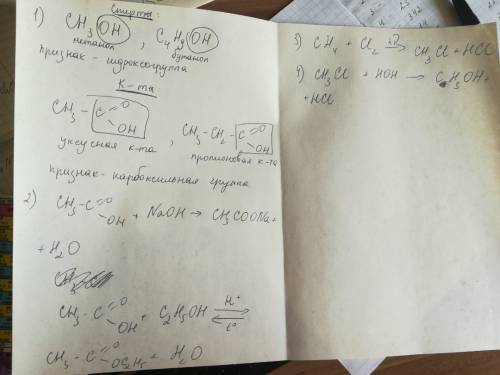 Спирты:
1) CH₃OH , C₄H₉OH
метанол бутанол
признак - гидроксогруппа
К-та
CH₃ - C =O
OH
CH₃ - CH₂ - C =O
OH
уксусная к-та , пропионовая к-та
признак - карбоксильная группа
2) CH₃ - C =O
OH + NaOH → CH₃COONa +
+ H₂O
CH₃ - C =O
OH + C₂H₅OH ⇄ H⁺
t°
CH₃ - C =O
OC₂H₅ + H₂O
3) CH₄ + Cl₂ → CH₃Cl + HCl
4) CH₃Cl + HOH → OH +
+ HCl